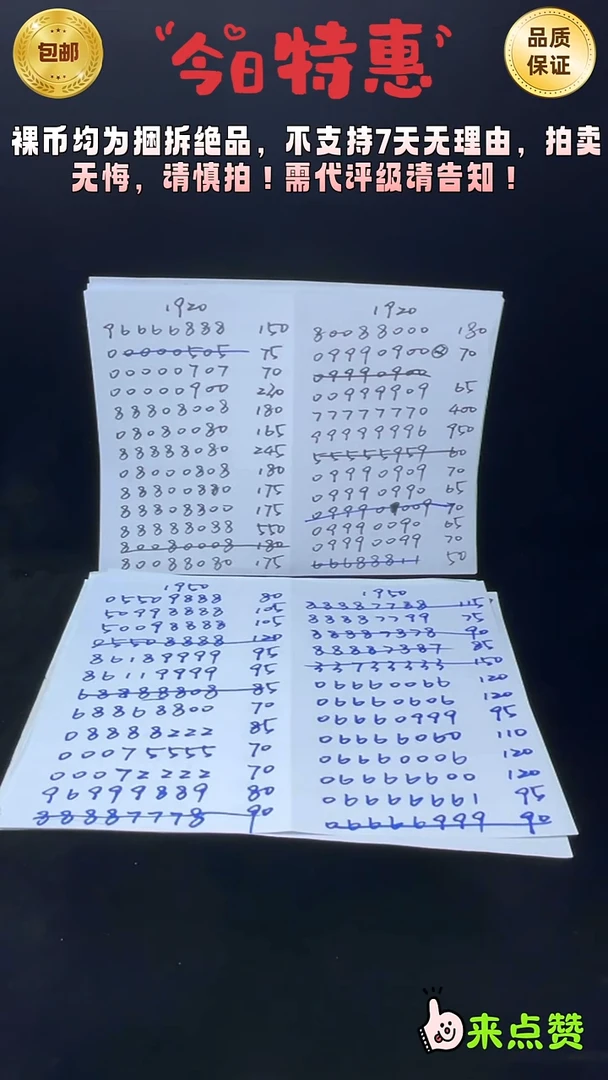 包邮
今日特惠
品质
保证
裸币均为捆拆绝品，不支持7天无理由，拍卖
无悔，请慎拍！需代评级请告知！
1920
96666888 150
00000505 75
00000707 70
00000900 230
88808008 180
08080080 165
88888080 245
08000808 180
88800880 175
88808800 175
88888088 550
80080008 180
80088080 175
1920
80088000 180
09990900 70
09990900
00999909 65
77777770 400
99999996 950
55555959 60
09990909 70
09990990 65
09990009 70
09990090 65
09990099 70
66688811 50
1950
05509888 80
50998888 105
50098888 105
05508888 120
86189999 95
86119999 95
68888808 85
68868800 70
08888222 85
00075555 70
00072222 70
96999889 80
88887778 90
1950
88887788 115
88887799 75
88887878 90
88887887 85
33733333 150
06660066 120
06660606 120
06660999 95
06666060 110
06660006 120
06666600 120
06666661 95
06666999 90
来点赞